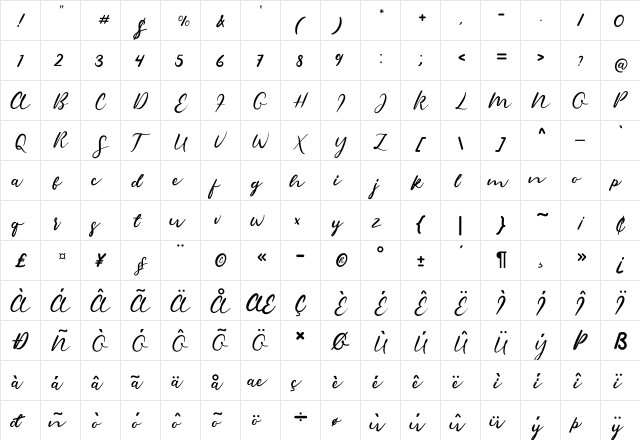 ! " # $ % & ' ( ) * + , - . / 0
1 2 3 4 5 6 7 8 9 : ; < = > ? @
A B C D E F G H I J K L M N O P
Q R S T U V W X Y Z [ \ ] ^ _ `
a b c d e f g h i j k l m n o p
q r s t u v w x y z { | } ~ ¡ ¢
£ ¤ ¥ § ¨ © « - ® ° ± ´ ¶ ¸ » ¿
À Á Â Ã Ä Å Æ Ç È É Ê Ë Ì Í Î Ï
Ð Ñ Ò Ó Ô Õ Ö × Ø Ù Ú Û Ü Ý Þ ß
à á â ã ä å æ ç è é ê ë ì í î ï
ð ñ ò ó ô õ ö ÷ ø ù ú û ü ý þ ÿ